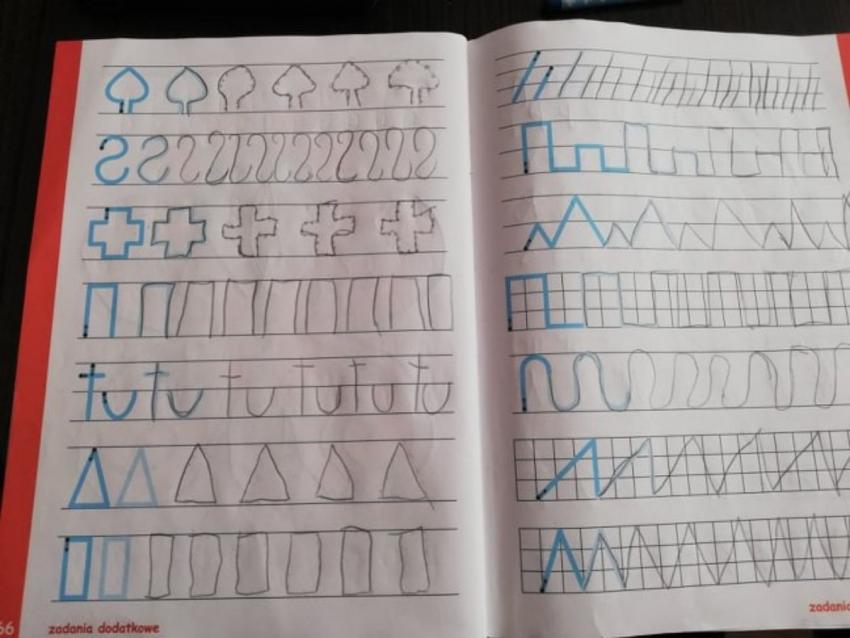 66 zadania dodatkowe
zadania